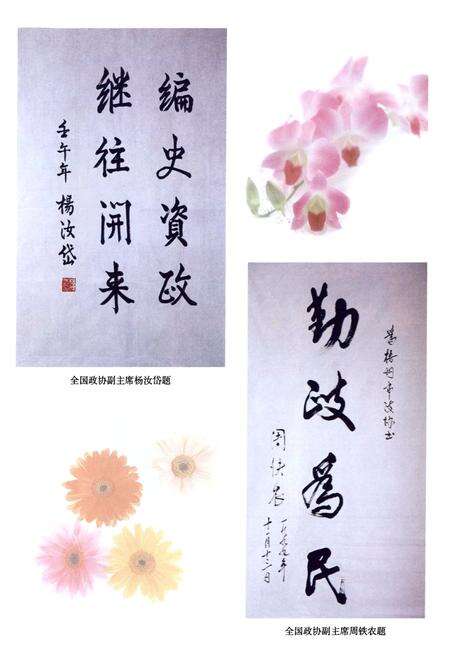 编史資政
继往開来
壬午年 楊汝岱
全国政协副主席杨汝岱题
勤政為民
周铁农
一九九九年
十一月十二日
全国政协副主席周铁农题